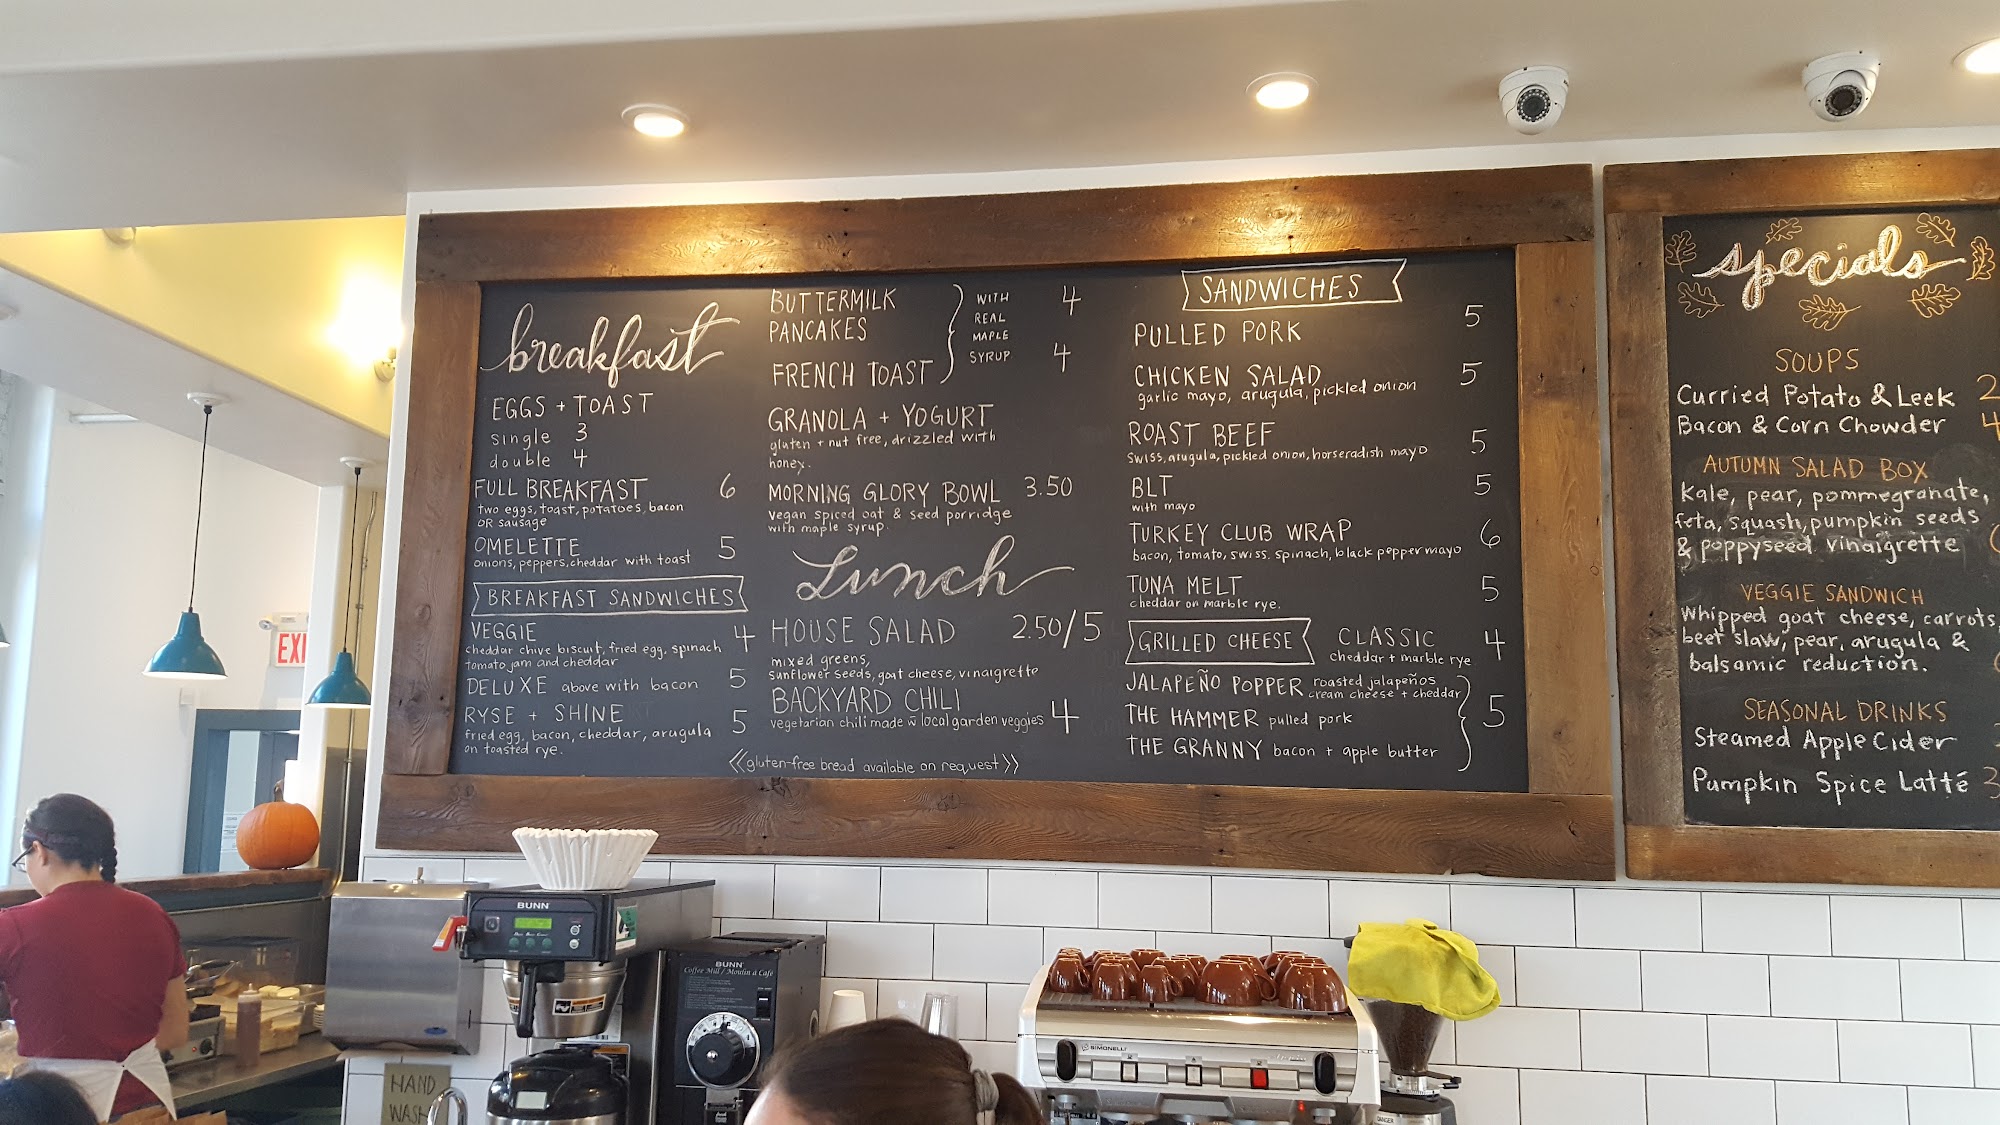 breakfast
EGGS + TOAST
single 3
double 4
FULL BREAKFAST 6
two eggs, toast, potatoes, bacon
OR sausage
OMELETTE 5
onions, peppers, cheddar with toast
BREAKFAST SANDWICHES
VEGGIE 4
cheddar chive biscuit, fried egg, spinach
tomato jam and cheddar
DELUXE above with bacon 5
RYSE + SHINE 5
fried egg, bacon, cheddar, arugula
on toasted rye.
BUTTERMILK 4
PANCAKES
FRENCH TOAST 4
WITH
REAL
MAPLE
SYRUP
GRANOLA + YOGURT
gluten + nut free, drizzled with
honey.
MORNING GLORY BOWL 3.50
vegan spiced oat & seed porridge
with maple syrup.
Lunch
HOUSE SALAD 2.50/5
mixed greens,
sunflower seeds, goat cheese, vinaigrette
BACKYARD CHILI 4
vegetarian chili made w local garden veggies
<<gluten-free bread available on request>>
SANDWICHES
PULLED PORK 5
CHICKEN SALAD 5
garlic mayo, arugula, pickled onion
ROAST BEEF 5
swiss, arugula, pickled onion, horseradish mayo
BLT 5
with mayo
TURKEY CLUB WRAP 6
bacon, tomato, swiss. spinach, black pepper mayo
TUNA MELT 5
cheddar on marble rye.
GRILLED CHEESE
CLASSIC 4
cheddar + marble rye
JALAPEÑO POPPER roasted jalapeños
cream cheese + cheddar
THE HAMMER pulled pork 5
THE GRANNY bacon + apple butter
specials
SOUPS
Curried Potato & Leek 2
Bacon & Corn Chowder 4
AUTUMN SALAD BOX
Kale, pear, pommegranate,
feta, squash, pumpkin seeds
& poppyseed vinaigrette
VEGGIE SANDWICH
Whipped goat cheese, carrots,
beet slaw, pear, arugula &
balsamic reduction.
SEASONAL DRINKS
Steamed Apple Cider
Pumpkin Spice Latté 3
EXI
BUNN
BUNN
Coffee Mill / Moulin à Café
SIMONELLI
HAND
WASH
DANGER